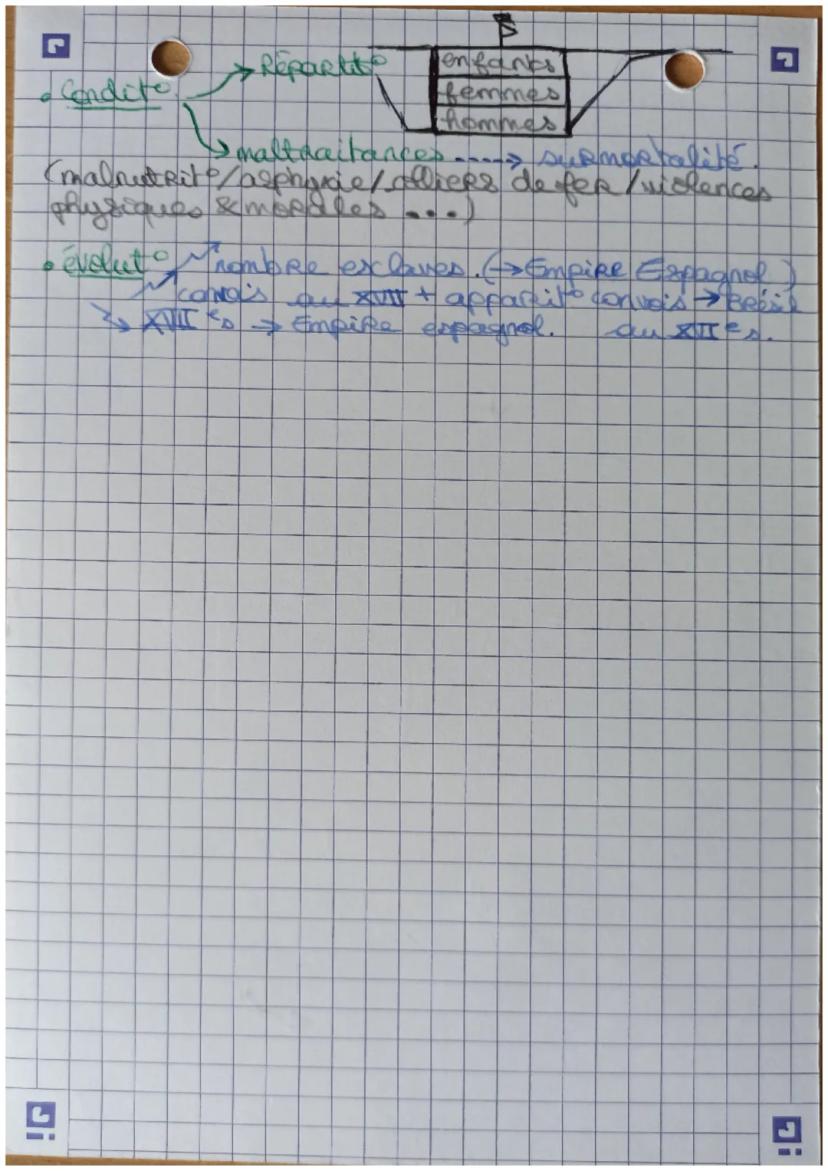 Répartit°
enfants
• Condit°
femmes
hommes
maltraitances ----> surmortalité.
(malnutrit°/asphyxie/colliers de fer/violences
physiques & morales ...)
• évolut° nombre esclaves. (→ Empire Espagnol)
convois au XVII + apparit° convois → Brésil
XVII es → Empire espagnol. au XVII es.